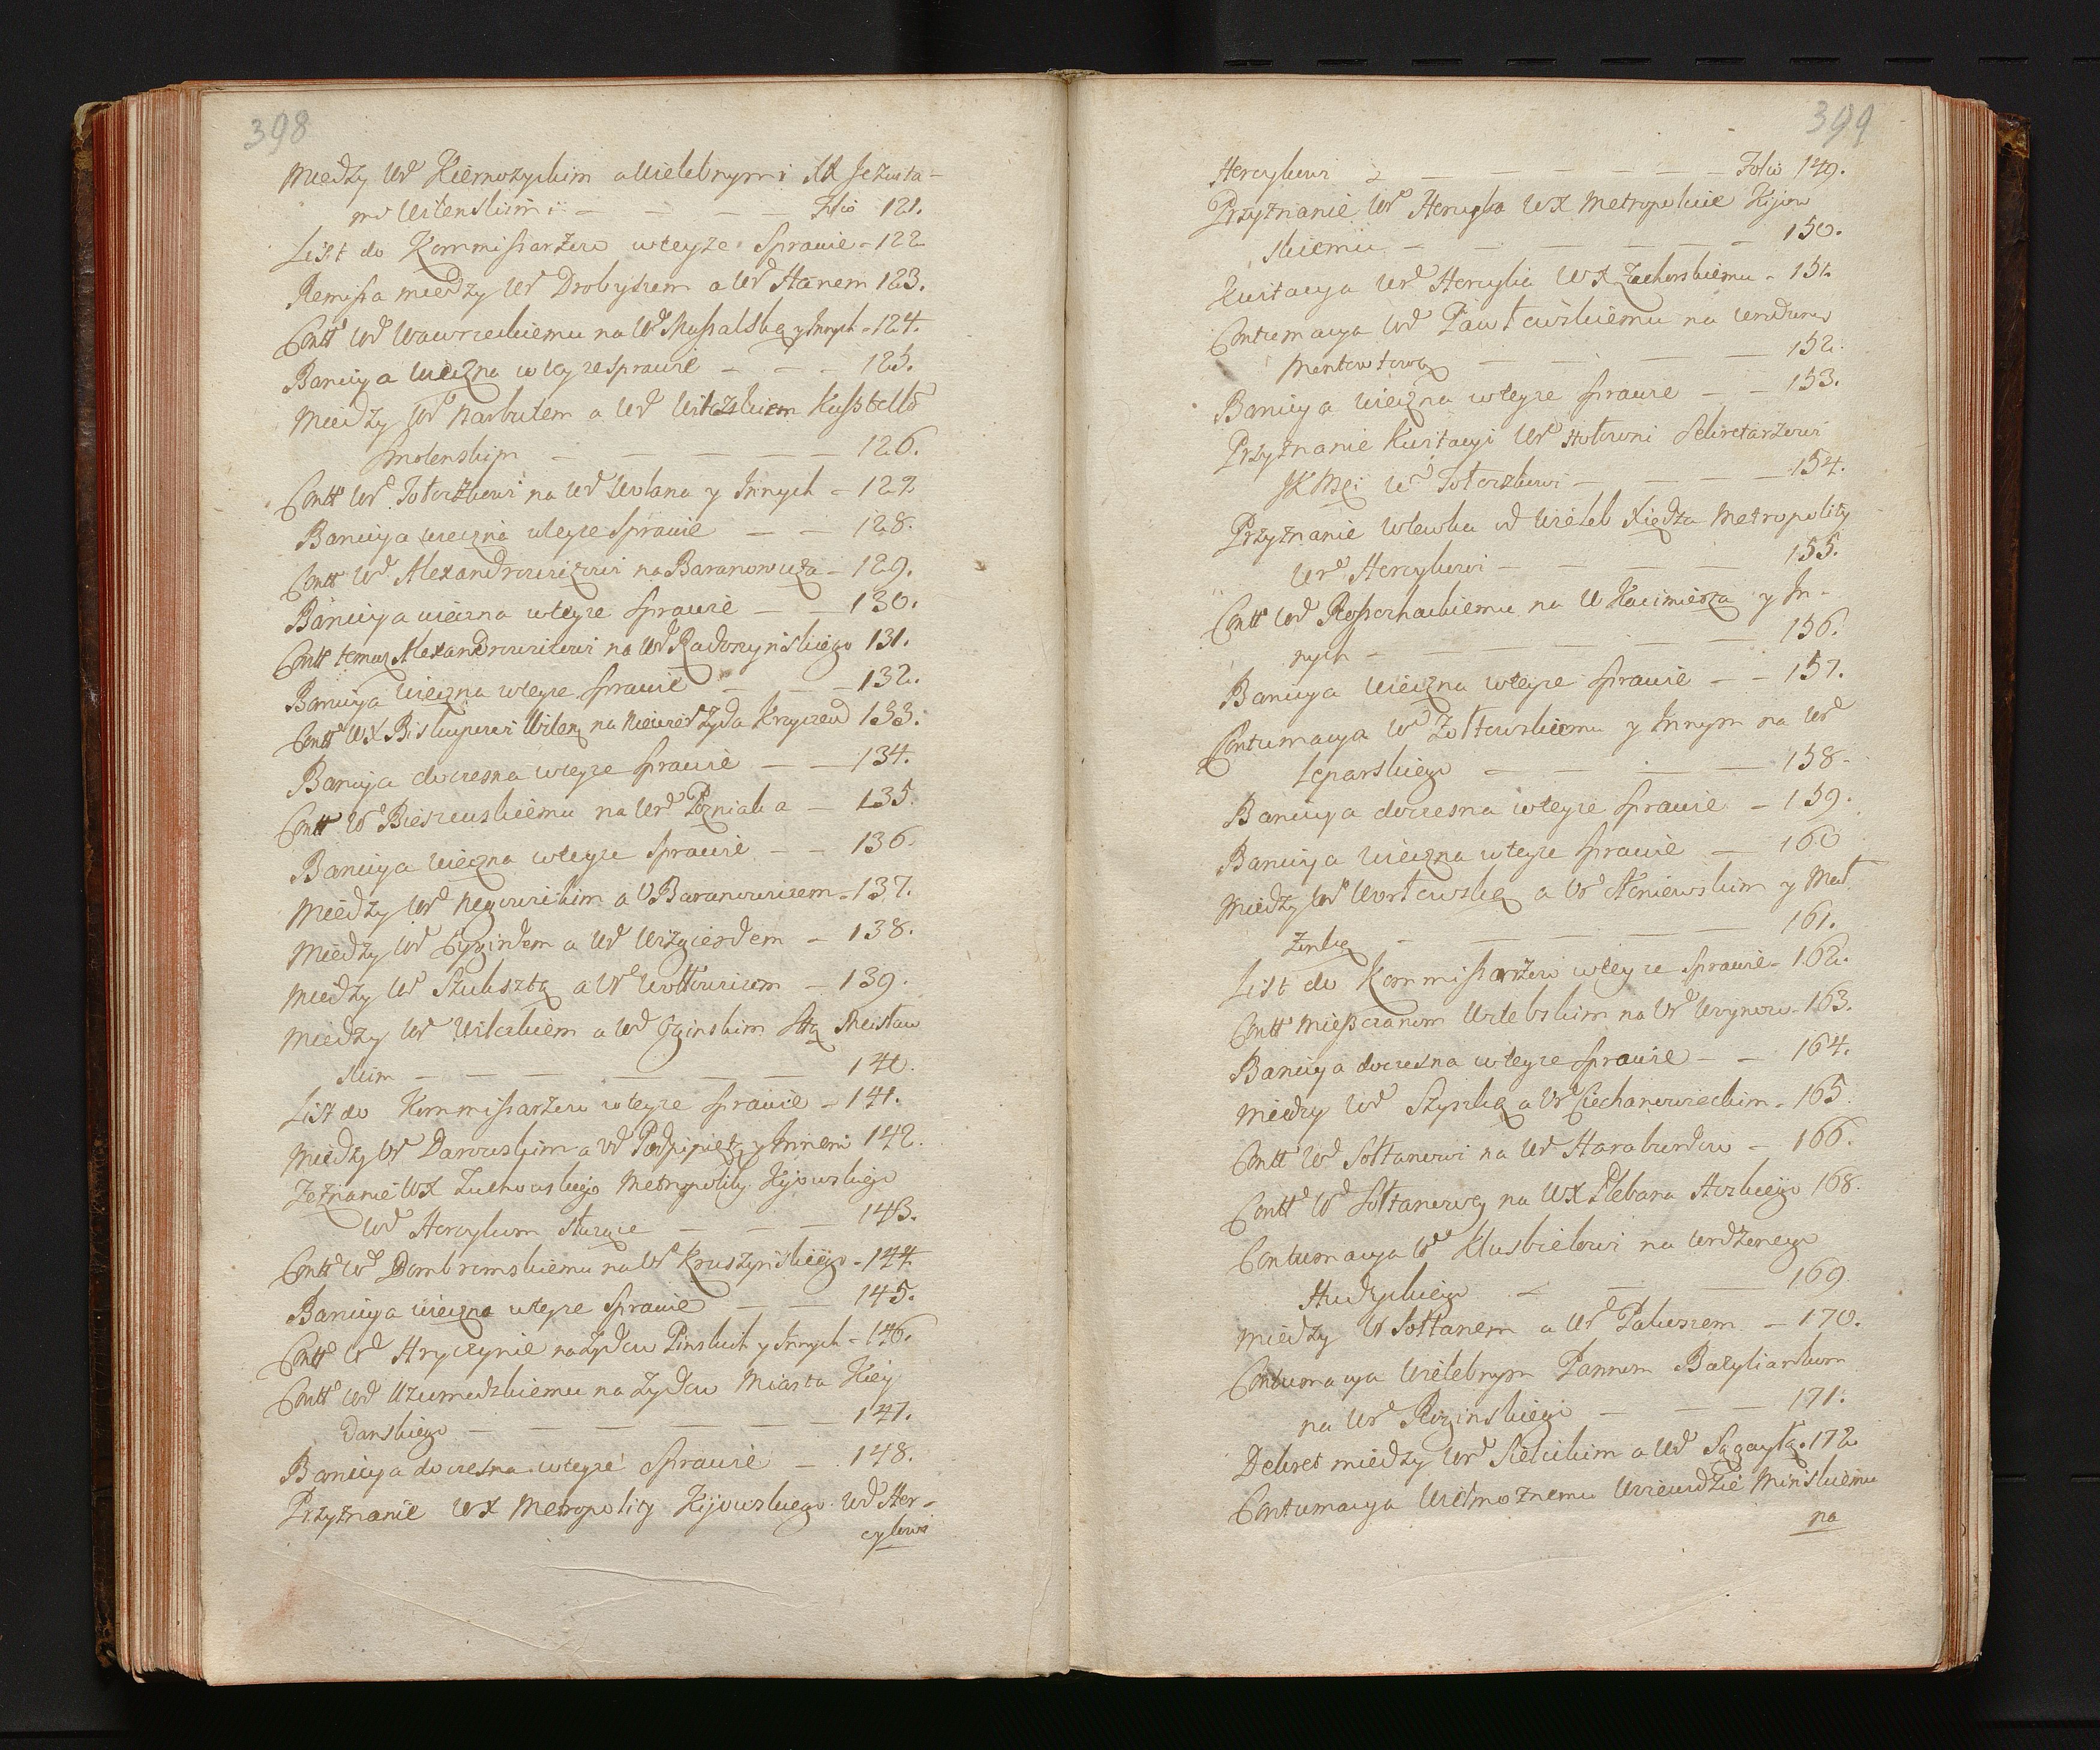 398
Między Ur Kiernozyckim a Wielebnymi XX Jezuita-
mi Wilenskimi — — — — Folio 121.
List do Kommissarzow wteyze Sprawie - 122
Remissa miedzy Ur Drobyszem a Ur Stanem 123.
Contt Ur Wawrzeckiemu na Ur Massalską y Innych - 124.
Banicya wieczna w teyze sprawie — — — 125.
Między Ur Narbutem a Ur
Smolenskim — — — — — 126.
Contt Ur Tołoczkowi na Ur Wolana y Innych - 127
Banicya wieczna wteyze Sprawie — — 128.
Contt Ur Alexandrowiczowi na Baranowicza - 129.
Banicya wieczna wteyze Sprawie — — 130.
Contt temuz Alexandrowiczowi na Ur Radoszynskiego 131.
Banicya wieczna wteyze Sprawie — — — 132.
Contt WX Biskupowi Wilen na Niewier Żyda 133.
Banicya doczesna wteyze Sprawie — — 134.
Contt Ur na Ur Pozniaka — 135.
Banicya wieczna wteyze Sprawie — — 136.
Między Ur a U Baranowiczem - 137.
Między Ur a Ur Wizgierdem — 138.
Między Ur Szuksztą a Ur Wołłowiczem — 139.
Między Ur Wilczkiem a Ur Oginskim Stą Mcisław
skim — — — — — — 140.
List do Kommissarzow wteyze Sprawie - 141.
Między Ur Darowskim a Ur Podpipiętą y Innemi 142.
Zeznanie WX Zuchowskiego Metropolity Kijowskiego
Ur Hercykom służące — — — 143.
Contt Ur Dombrowskiemu na Ur Kruszynskiego - 144
Banicya wieczna wteyze Sprawie — — 145.
Contt Ur Hryczynie na Żydow Pinskich y Innych - 146.
Contt Ur Uzumedzkiemu na Żydow Miasta Kiey
danskiego — — — — — — 147.
Banicya doczesna wteyze Sprawie — 148.
Przyznanie WX Metropolity Kijowskiego Ur Her-
cykowi
399
Hercykowi — — — — — — Folio 149.
Przyznanie Ur Hercyka WX Metropolicie Kijow
skiemu — — — — — — 150.
Kwitacya Ur Hercyka WX Zuchowskiemu - 151.
Contumacya Ur Pawłowskiemu na
Montowtową — — — — — 152.
Banicya wieczna wteyze sprawie — — 153.
Przyznanie Kwitacyi Ur Hołowni Sekretarzowi
JKMci Ur Tołoczkowi — — — — 154.
Przyznanie Wlewku od Wieleb Xiędza Metropolity
Ur Hercykowi — — — — 155.
Contt Ur na U Kazimierza y In-
nych — — — — — — 156.
Banicya wieczna wteyze sprawie — — 157.
Contumacya Ur Zołtowskiemu y Innym na Ur
Leparskiego — — — — 158-
Banicya doczesna wteyze Sprawie — 159.
Banicya wieczna wteyze Sprawie — 160
Między Ur a Ur y Mał
żonką — — — — — — 161.
List do Kommissarzow wteyze Sprawie - 162.
Contt Mieszczanom Witebskim na Ur - 163.
Banicya doczesna wteyze Sprawie — — 164.
Między Ur Szyszką a Ur Ciechanowieckim - 165.
Contt Ur Sołtanowi na Ur Haraburdow — 166.
Contt Ur Sołtanowey na WX Plebana 168.
Contumacya Ur Kłusbielowi na
— — 169.
Między Ur Sołtanem a Ur — 170.
Contumacya Wielebnym Pannom Bazyliankom
na Ur — — — 171.
Dekret między Ur Sielickim a Ur 172
Contumacya Wielmoznemu Woiewodzie Minskiemu
na